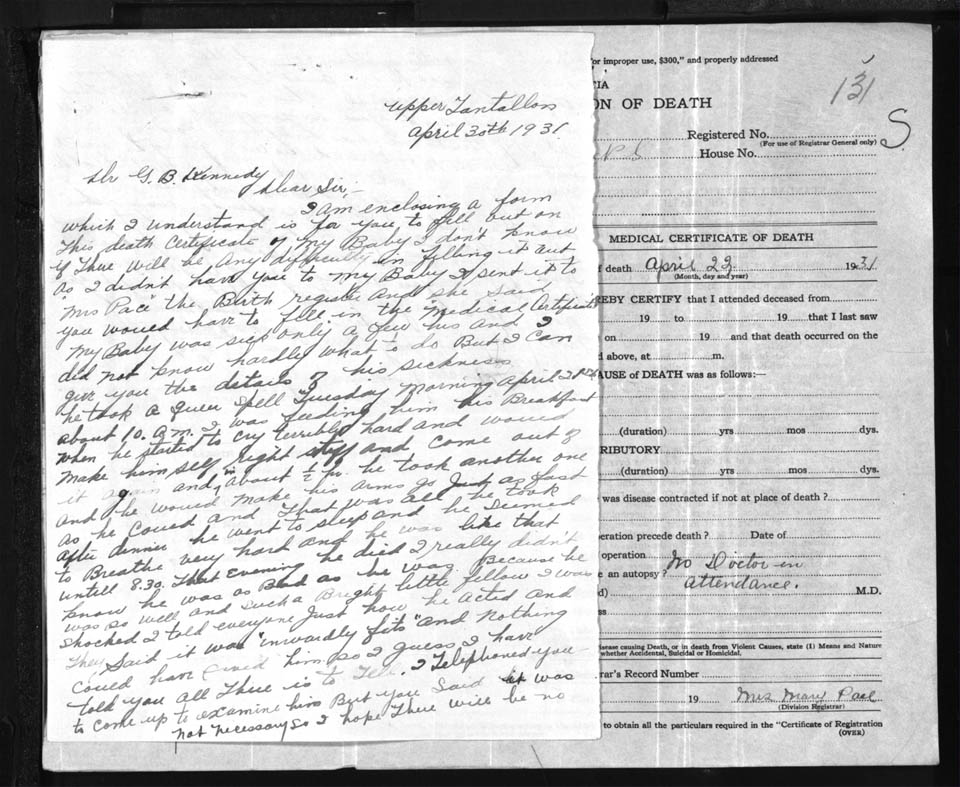 Upper Tantallon
April 30th 1931
Dr G. B. Kennedy
Dear Sir;-
I am enclosing a form
which I understand is for you to fill out on
This death Certificate of My Baby I don't know
if There will be Any difficulty in filling it out
as I didn't have you to My Baby I sent it to
"Mrs Pace" the Birth register And she said
you would have to fill in the "Medical Certificate"
My Baby was sick only a few hrs And I
did not know hardly what to do But I Can
give you the details of his sickness
he took a queer spell Tuesday Morning April
about 10. a.m. I was feeding him his Breakfast
when he started to cry terrible hard and would
Make him self right stiff and come out of
it again and in about ½ hr. he took another one
And he would Make his arms go Just as fast
as he could And That was all he took
after dinner he went to sleep and he seemed
to Breathe very hard and he was like that
untill 8.30. That Evening he died I really didn't
know he was as Bad as he was. Because he
was so well and such a Bright little fellow I was
shocked I told everyone Just how he acted and
They said it was "inwardly fits" and Nothing
could have saved him so I guess I have
told you all There is to Tell. I Telephoned you
to come up to examine him But you said it was
not necessary so I hope There will be no
for improper use, $300," and properly addressed
TIA
ON OF DEATH
131
S
Registered No.
(For use of Registrar General only)
House No.
MEDICAL CERTIFICATE OF DEATH
f death April 22 1931
(Month, day and year)
REBY CERTIFY that I attended deceased from
19 to 19 that I last saw
on 19 and that death occurred on the
d above, at m.
AUSE OF DEATH was as follows:—
(duration) yrs mos dys.
TRIBUTORY
(duration) yrs mos dys.
was disease contracted if not at place of death?
peration precede death? Date of
operation
e an autopsy? No Doctor in
attendance.
d) M.D.
ss
isease causing Death, or in death from Violent Causes, state (1) Means and Nature
whether Accidental, Suicidal or Homicidal.
rar's Record Number
19 Mrs Mary Pace
(Division Registrar)
to obtain all the particulars required in the "Certificate of Registration
(OVER)